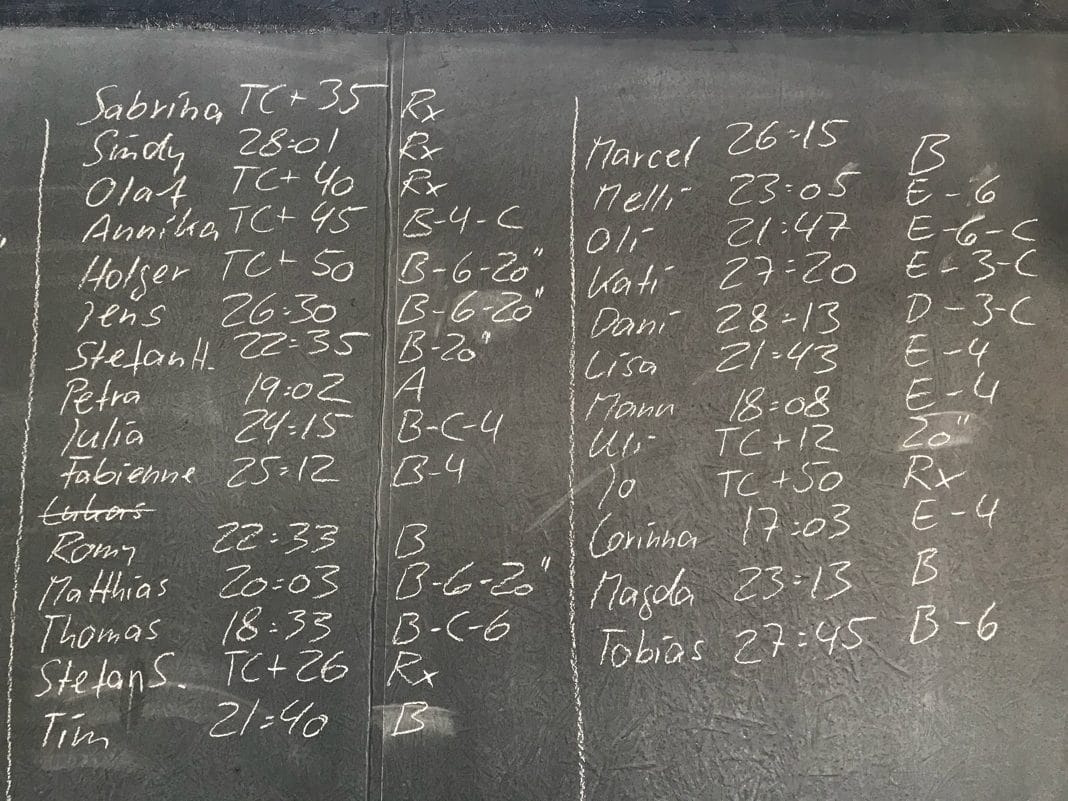 Sabrina TC+35 Rx
Sindy 28:01 Rx
Olaf TC+40 Rx
Annika TC+45 B-4-C
Holger TC+50 B-6-20"
Jens 26:30 B-6-20"
Stefan H. 22:35 B-20"
Petra 19:02 A
Julia 24:15 B-C-4
Fabienne 25:12 B-4
Lukas
Romy 22:33 B
Matthias 20:03 B-6-20"
Thomas 18:33 B-C-6
Stefan S. TC+26 Rx
Tim 21:40 B
Marcel 26:15 B
Melli 23:05 E-6
Oli 21:47 E-6-C
Kati 27:20 E-3-C
Dani 28:13 D-3-C
Lisa 21:43 E-4
Manu 18:08 E-4
Uli TC+12 20"
Jo TC+50 Rx
Corinna 17:03 E-4
Magda 23:13 B
Tobias 27:45 B-6